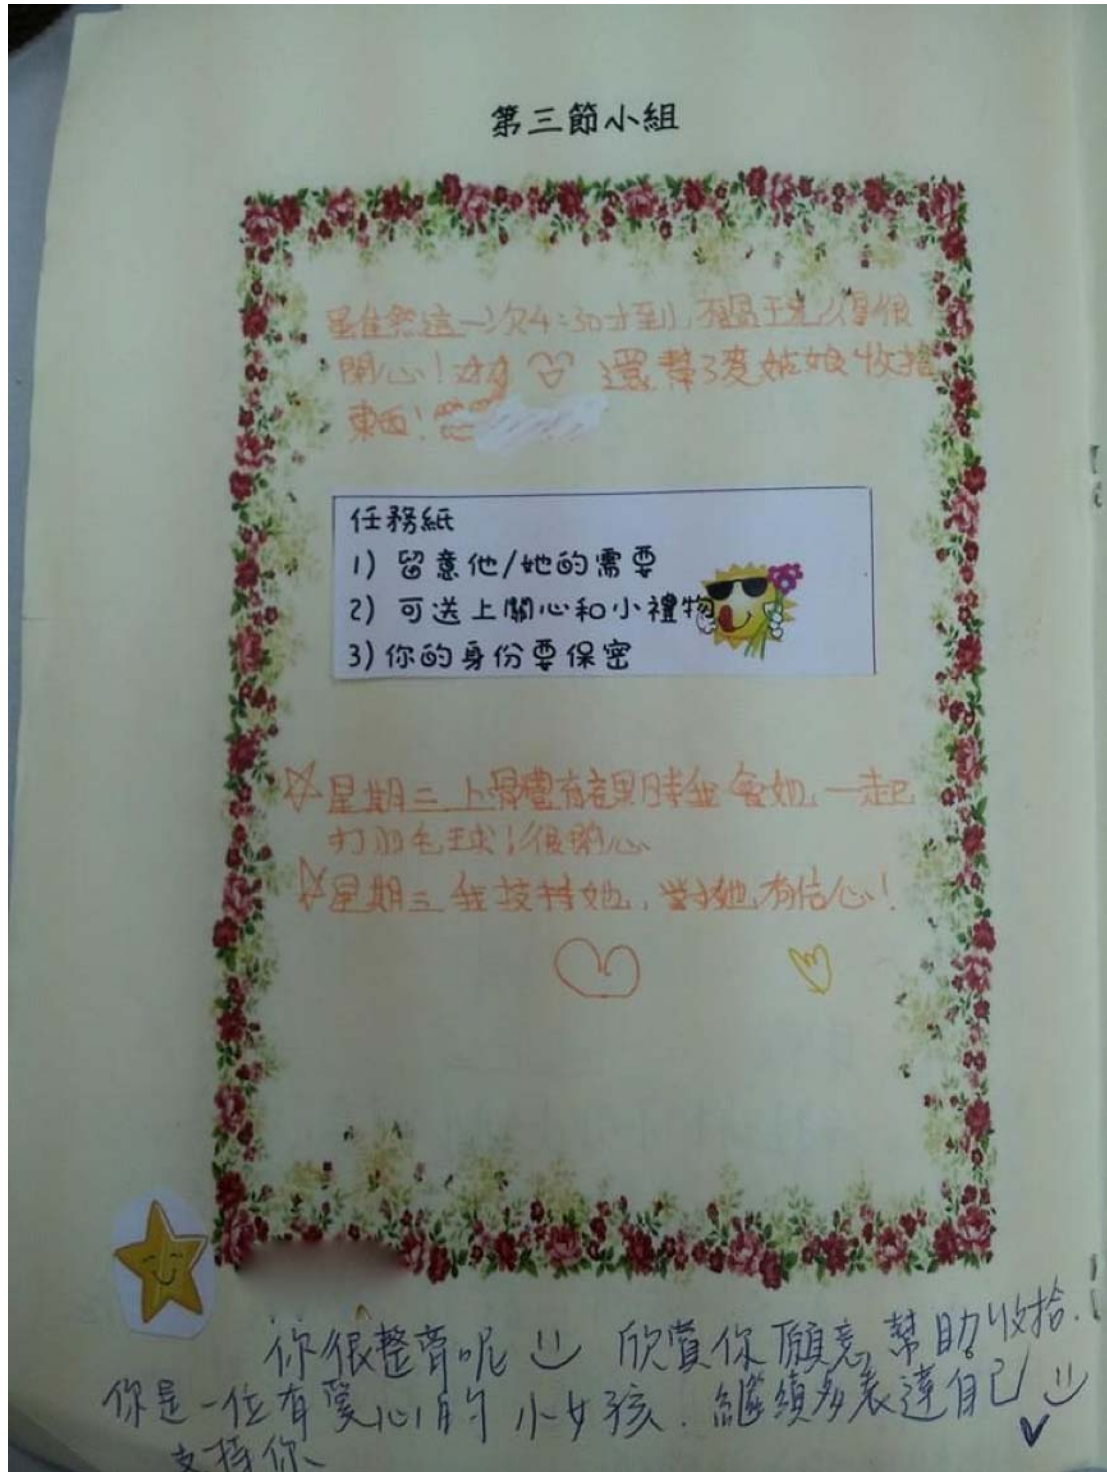 第三節小組
雖然這一次4:30才到,不過玩得很
開心!還幫了麥姑娘收拾
東西!
任務紙
1) 留意他/她的需要
2) 可送上關心和小禮物
3) 你的身份要保密
星期二上體育課時我會她一起
打羽毛球!很開心
星期三我支持她,對她有信心!
你很整齊呢 欣賞你願意幫助收拾.
你是一位有愛心的小女孩.繼續多表達自己
支持你